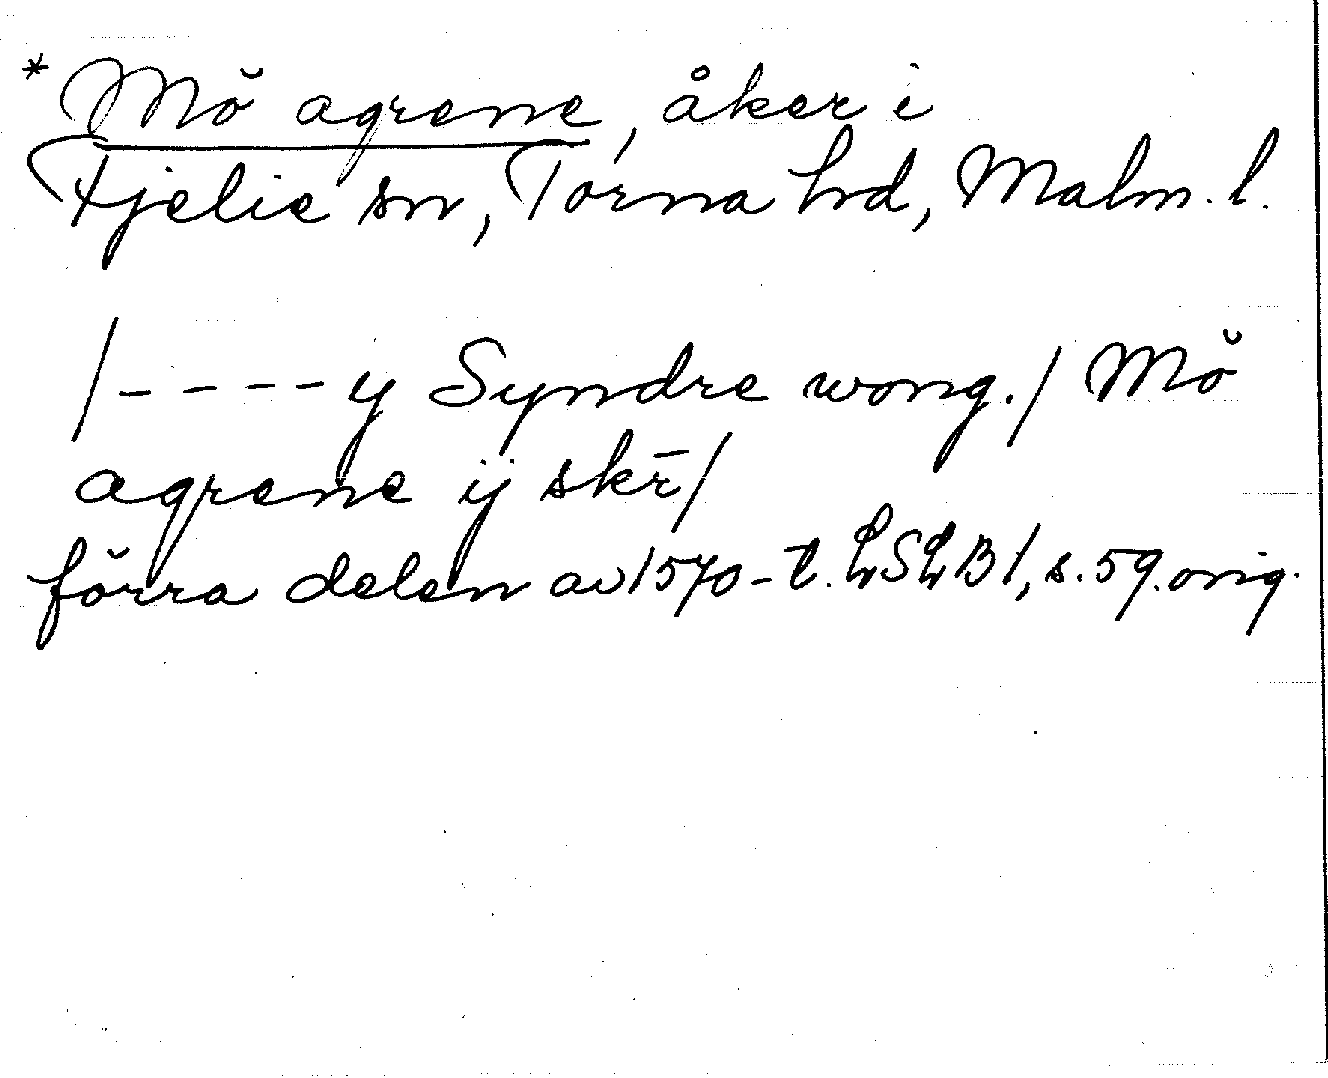 *Mö agrene, åker i
Fjelie sn, Torna hd, Malm. l.
/- - - - y Syndre wong./ Mö
agrene ij skr̄/
förra delen av 1570-t. LSLB 1, s. 59. orig.